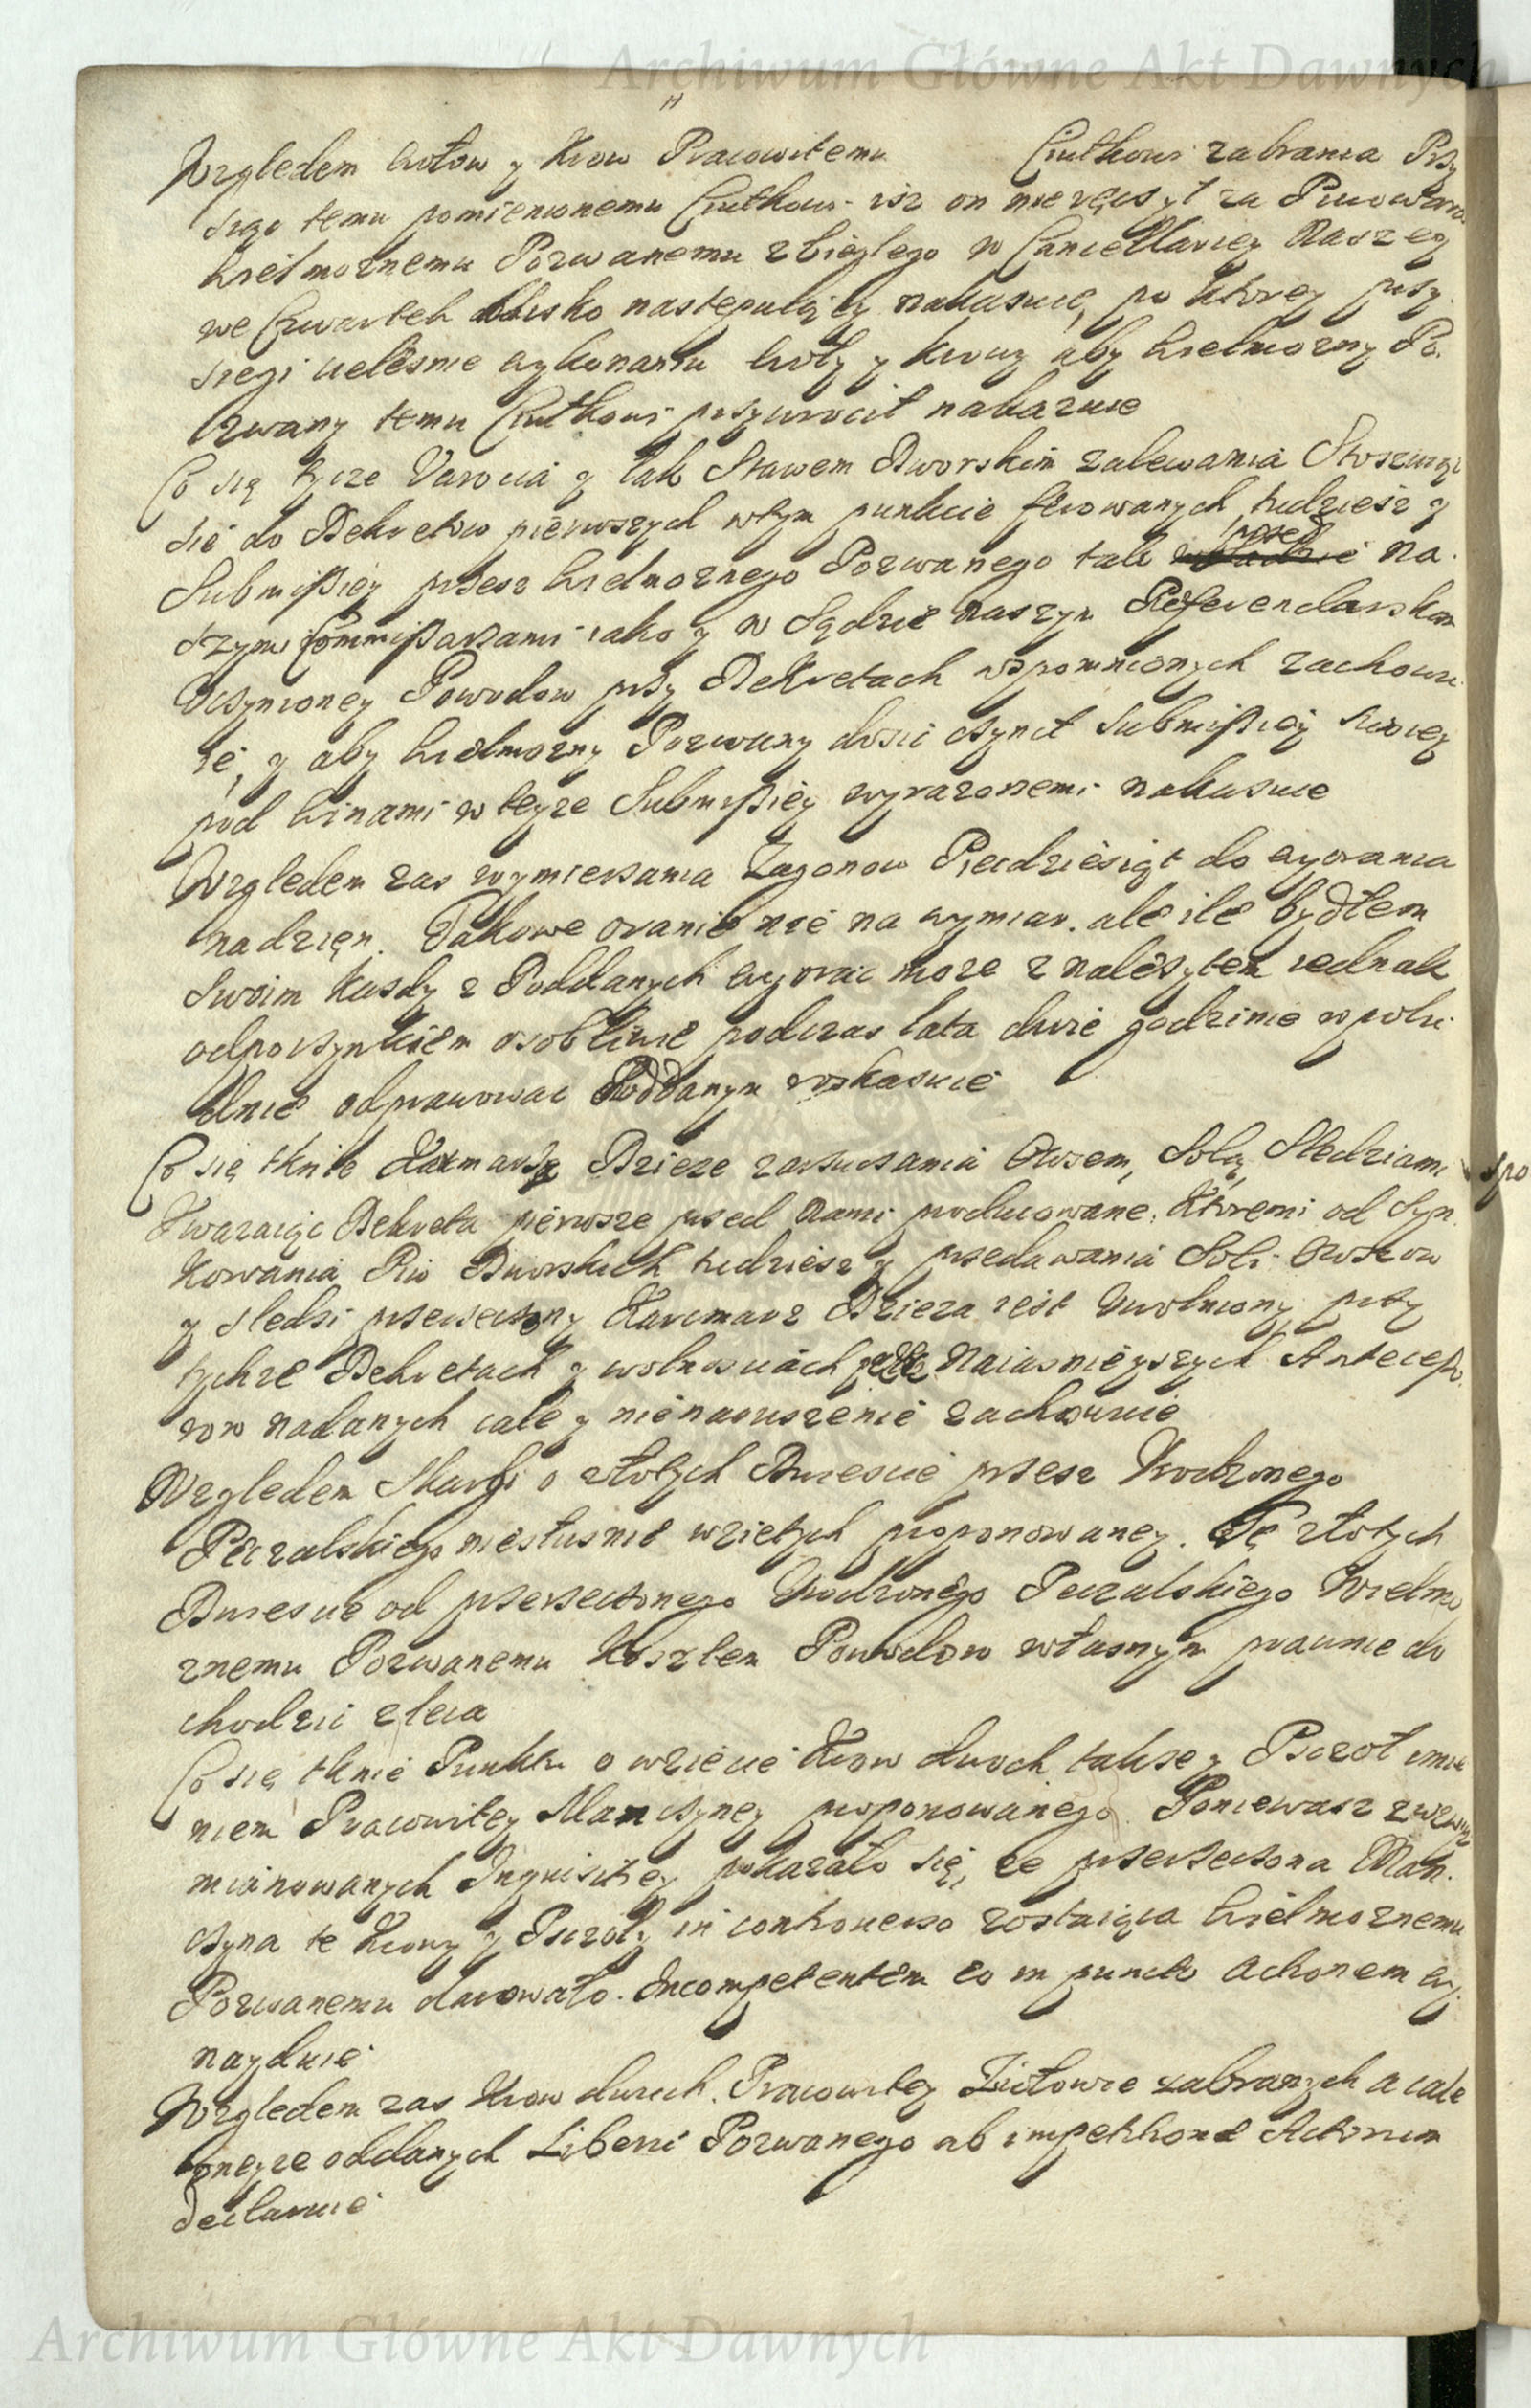 Archiwum Główne Akt Dawnych
Względem wołow y Krow Pracowitemu Ciutkowi zabrania Przy
sięgę temu pomienionemu Ciutkowi isz on nie ręczył za Pracowitego
Wielmoznemu Pozwanemu zbiegłego w Cancellariey Naszey
we Czwartek blisko następuiący nakazuie, po ktorey przy
siegi cieleśnie wykonaniu woły y krowy aby Wielmozny Po
zwany temu Ciutkowi przywrocił nakazuie
Co się tycze Varocia y łąk Stawem Dworskim zalewania Stosuiąc
sie do Dekretow pierwszych w tym punkcie ferowanych tudziesz y
Submissiey przesz Wielmoznego Pozwanego tak przed Na
szymi Commissarzami iako y w Sądzie naszym Referendarskim
Uczynioney Powodow przy Dekretach wspomnionych zachowu
ie, y aby Wielmozny Pozwany dosić czynił Submissiey swoiey
pod winami w teyze Submissiey wyrazonemi nakazuie
Względem zas wymierzania Zagonow Piecdziesiąt do wyorania
na dzięn. Takowe oranie nie na wymiar. ale ile bydłem
Swoim kazdy z Poddanych wyorac moze z nalezytem iednak
odpoczynkiem osobliwie podczas lata dwie godzinie w połu
dnie odprawowac Poddanym roskazuie
Co się tknie Karmarza Dzieze zarzucania Owsem, Solą, Sledziami
Uwazaiąc Dekreta pierwsze przed Nami producowane, Ktoremi od Szyn
kowania Piw Dworskich tudziesz y przedawania Soli Owsow
y sledzi przerzeczony Karcmarz Dzieza iest Uwolniony, przy
tychze Dekretach y wolnosciach przez Naiasnieyszych Antecesso
row nadanych cale y nienaruszenie zachowuie
Względem Skargi o złotych Dwiescie przesz Urodzonego
Peczalskiego niesłusznie wzietych proponowaney. Tę złotych
Dwiescie od przerzeczonego Urodzonego Peczalskiego Wielmo
znemu Pozwanemu Kosztem Powodow własnym prawnie do
chodzić zleca
Co się tknie Punktu o wziecie Krow dwoch takze y Pszczoł imie
niem Pracowitey Manczyney proponowanego. Poniewasz z wzwysz
mianowanych Inquisitiey pokazało się, ze przerzeczona Man
czyna te Krowy y Pszczoły in controverso zostaiąca Wielmoznemu
Pozwanemu darowała. Incompetentem eo in puncto Actionem wy
nayduie
Względem zas Krow dwuch Pracowitey Ziołowie zabranych a cale
oneyze oddanych Liberum Pozwanego ab impetitione Actorum
declaruie
spo
Archiwum Główne Akt Dawnych